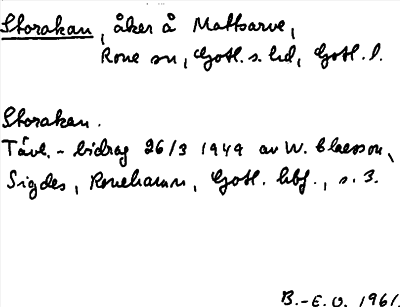 Storakan, åker å Mattsarve,
Rone sn, Gotl. s. hd, Gotl. l.
Storakan.
Tävl.-bidrag 26/3 1949 av W. Claesson,
Sigdes, Ronehamn, Gotl. hbf., s. 3.
B.-E.O. 1961.